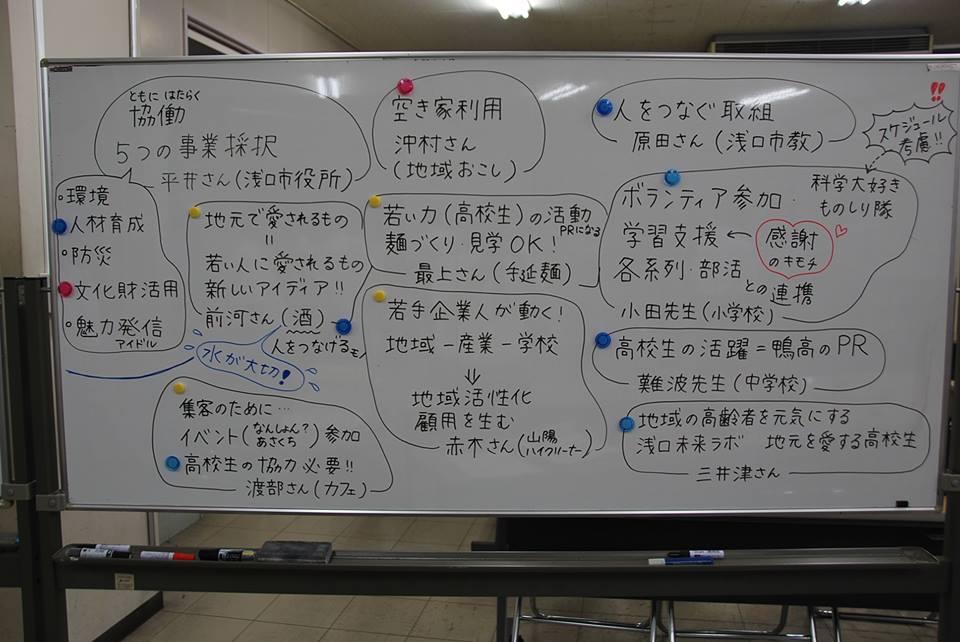 ともに はたらく
協働
5つの事業採択
平井さん(浅口市役所)
・環境
人材育成
・防災
文化財活用
・魅力発信
アイドル
空き家利用
沖村さん
(地域おこし)
人をつなぐ取組
原田さん(浅口市教)
!!
スケジュール
考慮!!
地元で愛されるもの
=
若い人に愛されるもの
新しいアイディア!!
前河さん(酒)
人をつなげるモノ
水が大切!
若い力(高校生)の活動
PRになる
麺づくり・見学OK!
最上さん(手延麺)
科学大好き
ものしり隊
ボランティア参加・
学習支援 ← 感謝
のキモチ
各系列・部活
との連携
小田先生(小学校)
若手企業人が動く!
地域-産業-学校
⇓
地域活性化
顧用を生む
赤木さん(山陽
ハイクリーナー)
高校生の活躍=鴨高のPR
難波先生(中学校)
集客のために…
イベント(なんしょん?
あさくち)参加
高校生の協力必要!!
渡部さん(カフェ)
地域の高齢者を元気にする
浅口未来ラボ 地元を愛する高校生
三井津さん